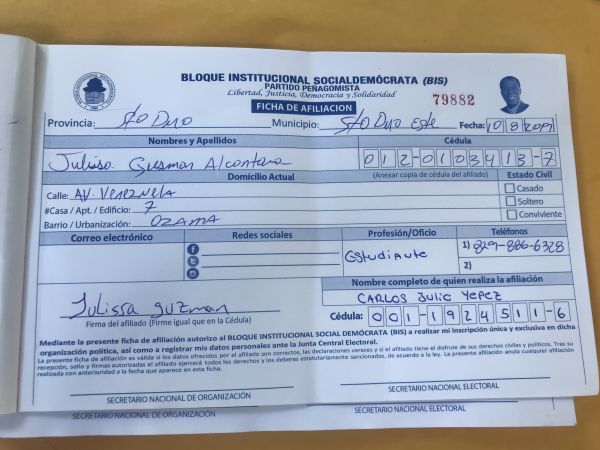 BLOQUE INSTITUCIONAL SOCIALDEMÓCRATA (BIS)
PARTIDO PEÑAGOMISTA
Libertad, Justicia, Democracia y Solidaridad
79882
FICHA DE AFILIACION
Provincia: S/O Dgo Municipio: S/O Dgo Este Fecha: 10 8 2019
Nombres y Apellidos Cédula
Julissa Gusman Alcantara 012-0103413-7
Domicilio Actual (Anexar copia de cédula del afiliado) Estado Civil
Calle: AV. Venezuela Casado
#Casa / Apt. / Edificio: 7 Soltero
Barrio / Urbanización: OZAMA Conviviente
Correo electrónico Redes sociales Profesión/Oficio Teléfonos
Estudiante 1) 829-886-6328
2)
Nombre completo de quien realiza la afiliación
CARLOS Julio YEPEZ
Julissa guzman Cédula: 001-1924511-6
Firma del afiliado (Firme igual que en la Cédula)
Mediante la presente ficha de afiliación autorizo al BLOQUE INSTITUCIONAL SOCIAL DEMÓCRATA (BIS) a realizar mi inscripción única y exclusiva en dicha
organización política, así como a registrar mis datos personales ante la Junta Central Electoral.
La presente ficha de afiliación es válida si los datos ofrecidos por el afiliado son correctos, las declaraciones veraces y si el afiliado tiene el disfrute de sus derechos civiles y políticos. Tras su
recepción, sello y firmas autorizadas el afiliado ejercerá todos los derechos y los deberes estatutariamente sancionados, de acuerdo a la ley. La presente afiliación anula cualquier afiliación
realizada con anterioridad a la fecha que aparece en esta ficha.
SECRETARIO NACIONAL DE ORGANIZACIÓN SECRETARIO NACIONAL ELECTORAL
SECRETARIO NACIONAL DE ORGANIZACIÓN SECRETARIO NACIONAL ELECTORAL